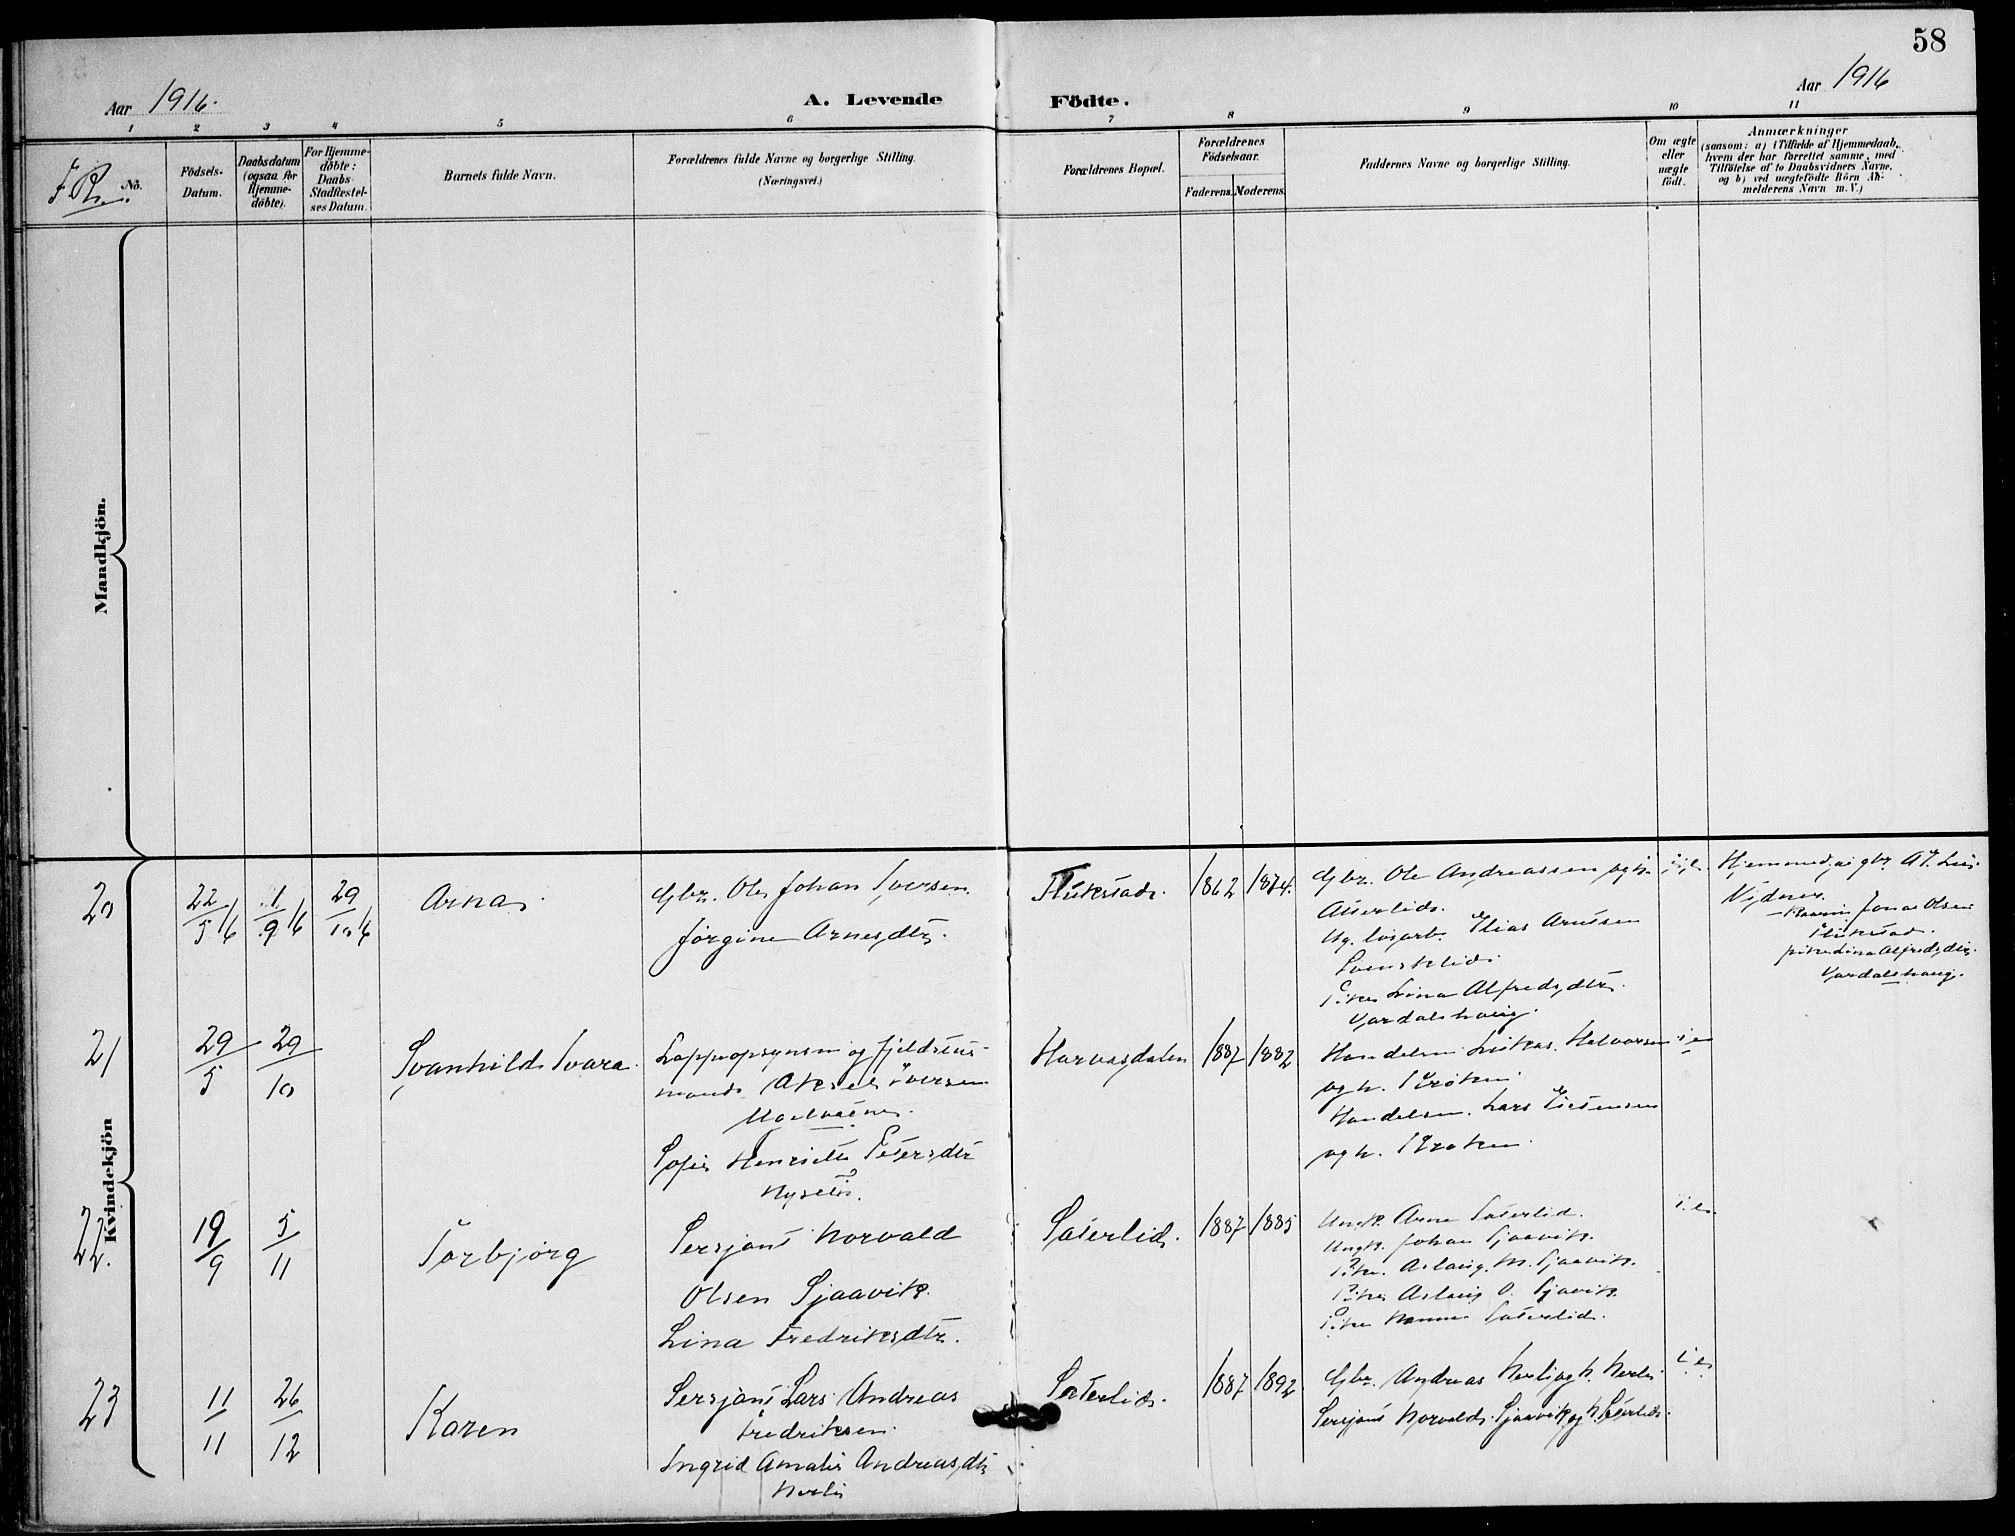 58
Aar 1916.
A. Levende
Födte.
Aar 1916
1 2 3 4 5 6 7 8 9 10 11
No.
Födsels-
Datum.
Daabsdatum
(ogsaa for
Hjemme-
döbte).
For Hjemme-
döbte:
Daabs-
Stadfæstel-
ses Datum.
Barnets fulde Navn.
Forældrenes fulde Navne og borgerlige Stilling.
(Næringsvei.)
Forældrenes Bopæl.
Forældrenes
Födselsaar.
Faderens. Moderens.
Faddernes Navne og borgerlige Stilling.
Om ægte
eller
uægte
födt.
Anmærkninger
(saasom: a) i Tilfælde af Hjemmedaab,
hvem der har forrettet samme, med
Tilföielse af to Daabsvidners Navne.
og b) ved uægtefödte Börn An-
melderens Navn m. V.)
Mandkjön.
Kvindekjön
20
22/5 16
1/9 16
29/10 16
Arna
Gbr. Ole Johan Iversen
Jörgine Arnesdtr.
1862 1874.
Gbr. Ole Andreassen og h.
Elias
Lina Alfredsdtr.
Vidner
Jonas Olsen
Lina Alfredsdtr.
21
29/5
29/10
Svanhild Svara
Lappopsynsm og fjeldstue-
mand Aksel Iversen
Sofie Henriette Petersdtr
Harvasdalen
1887 1882
Handelsm. Lukas Halvorsen
og h. Kroken
Handelsm. Lars
og h. Kroken
22.
19/9
5/11
Torbjörg
Sersjant Norvald
Olsen Sjaavik.
Lina Fredriksdtr.
Sæterlid.
1887 1885
Ungk. Arne Sæterlid.
Ungk. Johan Sjaavik.
Pike Aslaug M. Sjaavik.
Pike Aslaug O. Sjavik.
Pike Sæterlid.
23
11/11
26/12
Karen
Sersjant Lars Andreas
Fredriksen
Ingrid Amalie Andreasdtr
Sæterlid.
1887 1892
Gbr. Andreas
Sersjant Norvald Sjaavik og h. Sæterlid.